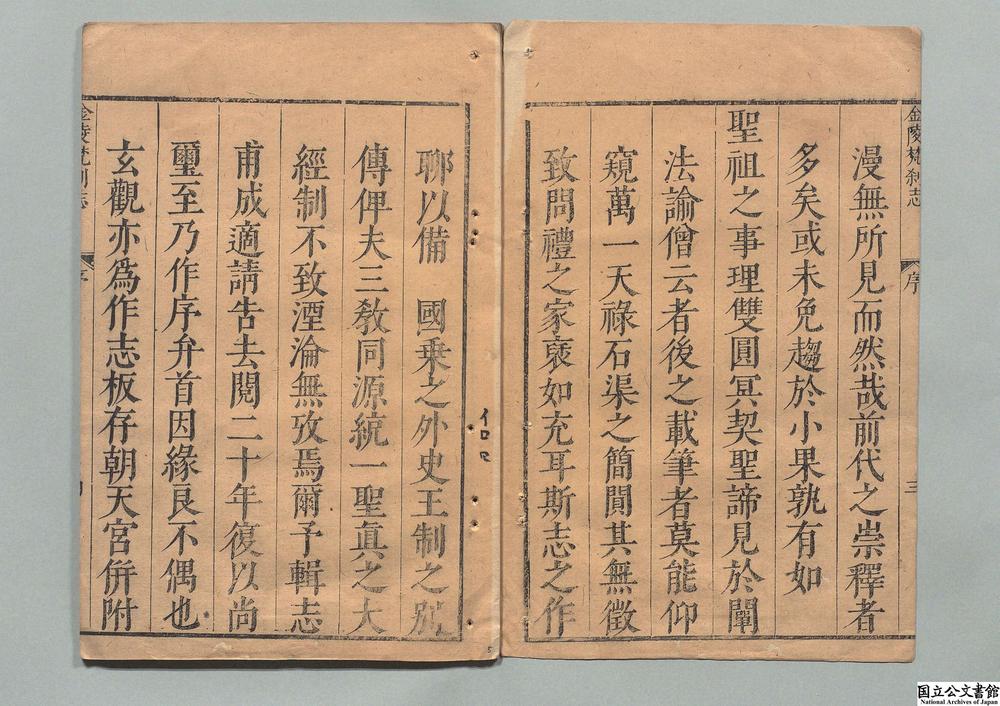 金陵梵刹志
序
三
漫無所見而然哉前代之崇釋者
多矣或未免趨於小果孰有如
聖祖之事理雙圓冥契聖諦見於闡
法諭僧云者後之載筆者莫能仰
窺萬一天祿石渠之簡閴其無徵
致問禮之家褎如充耳斯志之作
聊以備　國乘之外史王制之別
傳俾夫三敎同源統一聖眞之大
經制不致湮淪無攷焉爾予輯志
甫成適請告去閱二十年復以尚
璽至乃作序弁首因緣良不偶也
玄觀亦爲作志板存朝天宮併附
金陵梵刹志
序
国立公文書館
National Archives of Japan